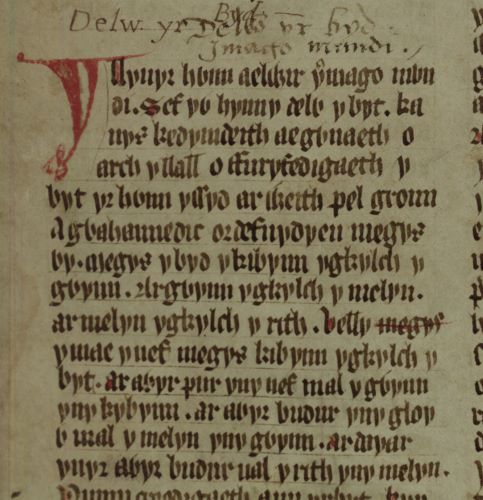 Byd
Delw yr Delw yr byd
Imago mundi.
Yllyuyr hwnn aelwir ymago mun
di. Sef yw hynny delw y byt. ka
nys kedymdeith aegwnaeth o
arch yllall o ffuryfedigaeth y
byt yr hwnn yssyd ar weith pel gronn
Agwahannedic ordefnydyeu megys
wy. megys y byd ykibynn ygkylch y
gwynn. Argwynn ygkylch y melyn.
ar melyn ygkylch y rith. velly megys
ymae ynef megys kibynn ygkylch y
byt. ar awyr pur yny nef mal ygwynn
yny kybynn. ar awyr budur yny gloy
w mal y melyn yny gwynn. ar dayar
ynyr awyr budur ual y rith yny melyn.